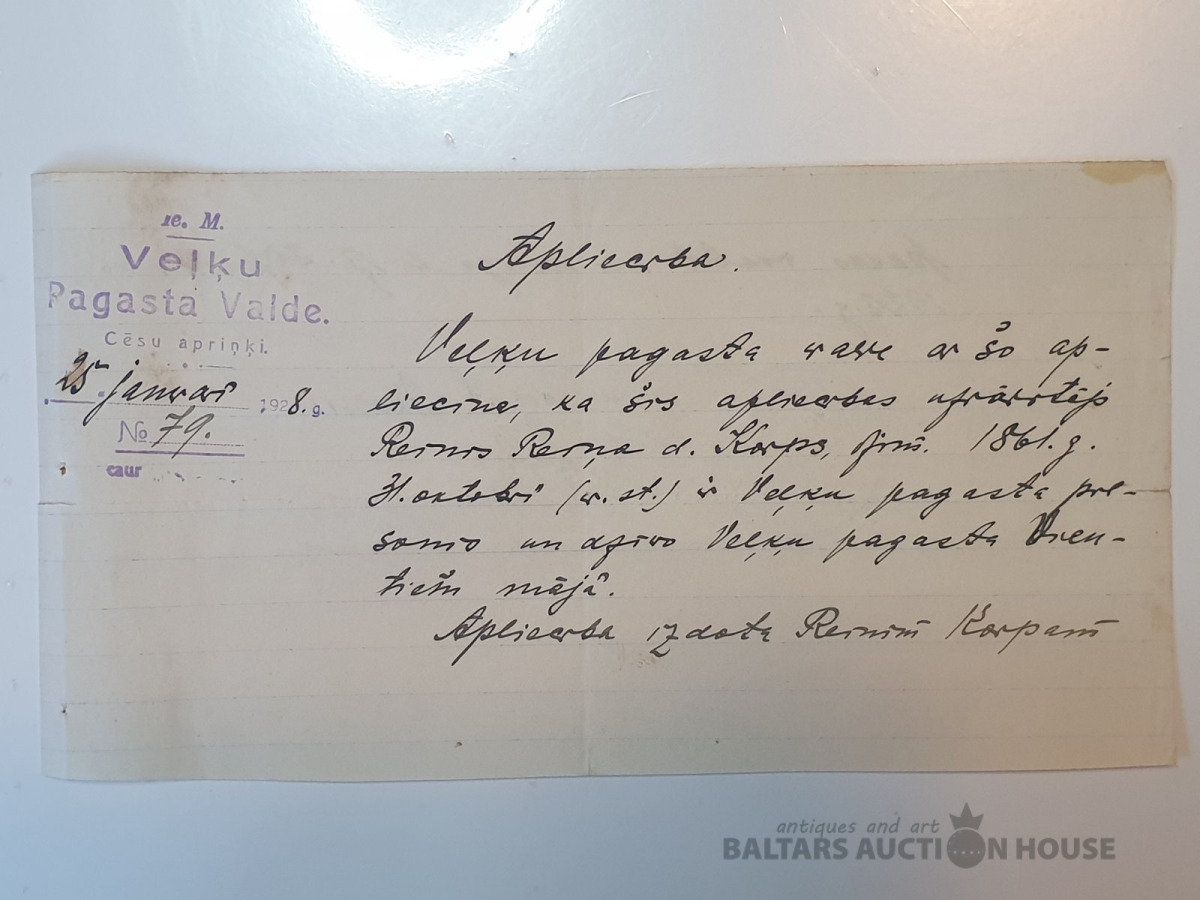 Ie. M.
Veļķu
Pagasta Valde.
Cēsu apriņķī.
25. janvarī 1928. g.
№ 79.
caur
Apliecība.
Veļķu pagasta walde ar šo ap-
liecina, ka šīs apliecības uzrādītājs
Reinis Reiņa d. Korps, dzim. 1861. g.
31. oktobrī (v. st.) ir Veļķu pagasta pie-
un dzīvo Veļķu pagasta
mājā.
Apliecība izdota Reinim Korpam
antiques and art
BALTARS AUCTION HOUSE